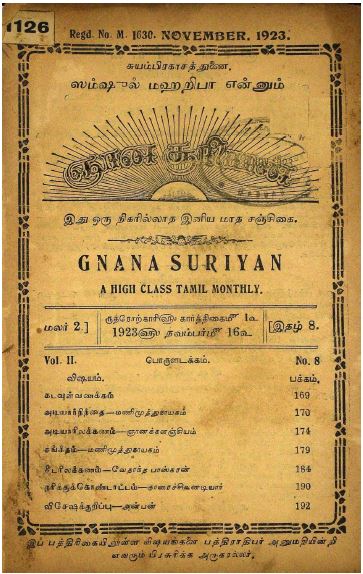 1126
Regd. No. M. 1630. NOVEMBER. 1923.
சுயம்பிரகாசத்துணை.
ஸம்ஷுல் மஹரிபா என்னும்
ஞான சூரியன்
இது ஒரு நிகரில்லாத இனிய மாத சஞ்சிகை.
GNANA SURIYAN
A HIGH CLASS TAMIL MONTHLY.
மலர் 2.] ருத்ரோற்காரி௵ கார்த்திகை௴ 1௳ [இதழ் 8.
1923௵ நவம்பர்௴ 16௳
Vol. II. பொருளடக்கம். No. 8
விஷயம். பக்கம்.
கடவுள்வணக்கம் 169
அடியார்நிந்தை—மணிமுத்துநாயகம் 170
அடியாரிலக்கணம்—ஞானக்களஞ்சியம் 174
சங்கீதம்—மணிமுத்துநாயகம் 179
சீடரிலக்கணம்—வேதாந்த பாஸ்கரன் 184
நரிக்குக்கொண்டாட்டம்— 190
விசேஷக்குறிப்பு—அன்பன் 192
இப் பத்திரிகையிலுள்ள விஷயங்களை பத்திராதிபர் அனுமதியின்றி
எவரும் பிரசுரிக்க அருகரல்லர்.